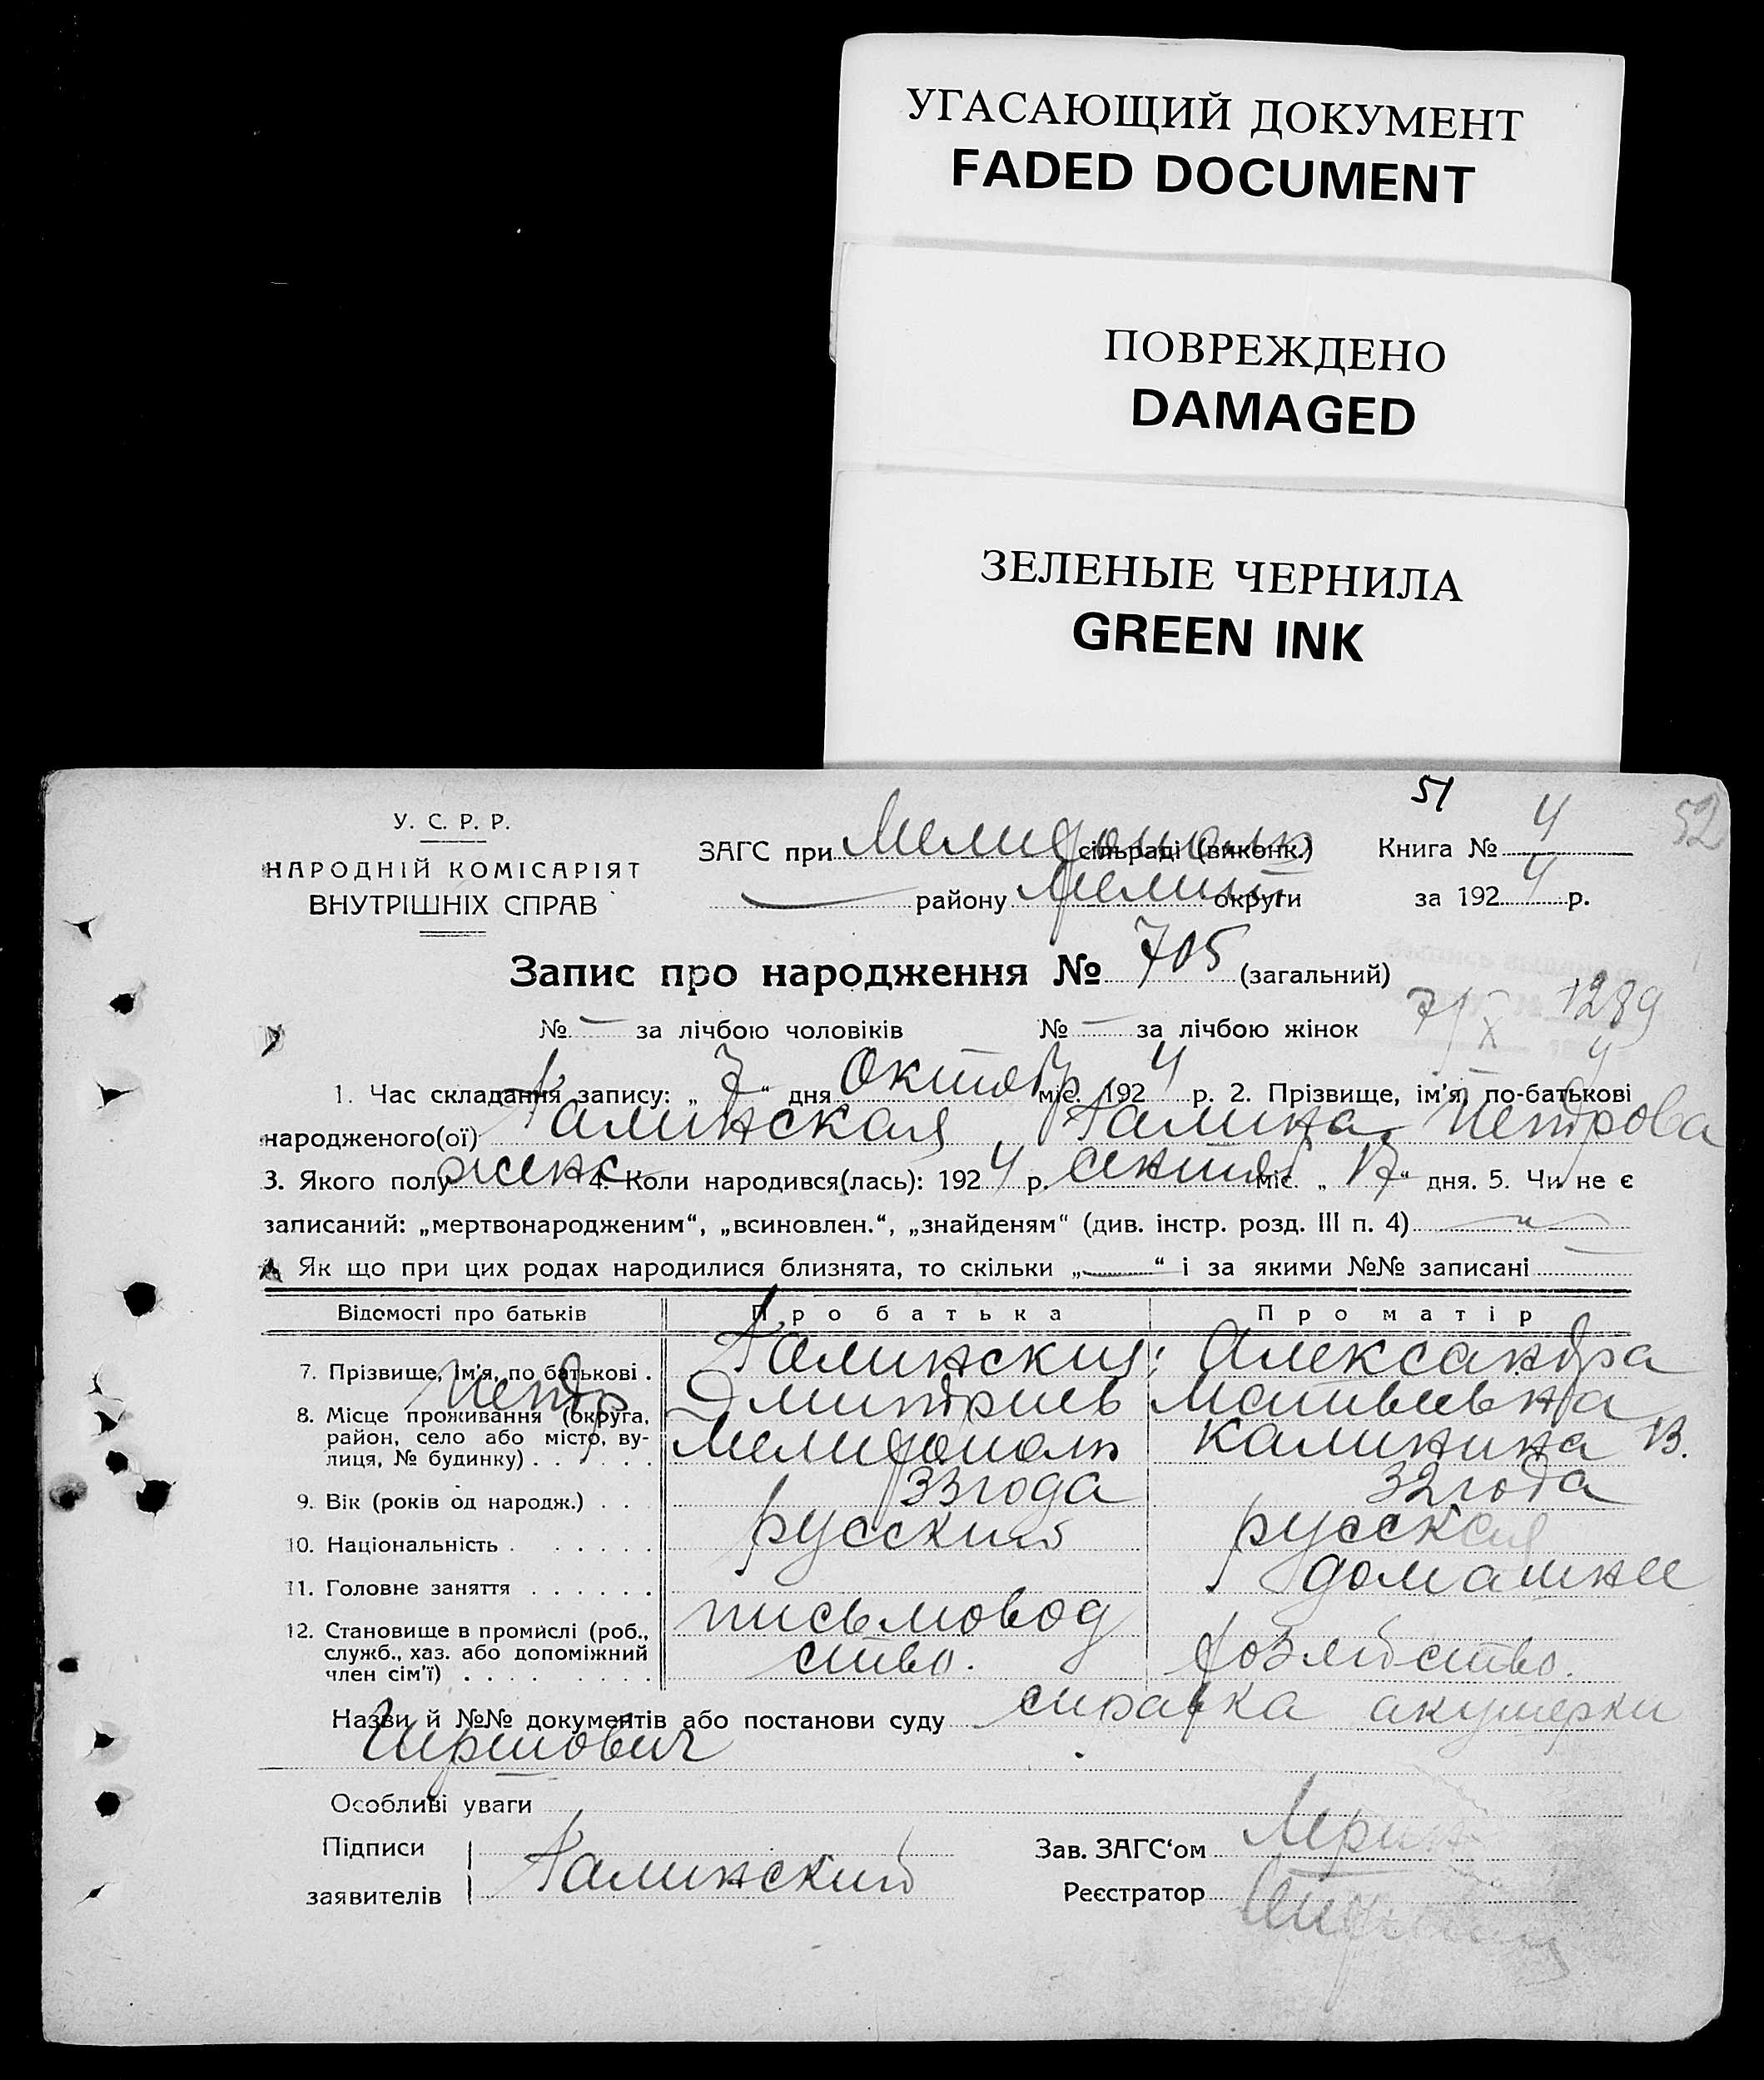 УГАСАЮЩИЙ ДОКУМЕНТ
FADED DOCUMENT
ПОВРЕЖДЕНО
DAMAGED
ЗЕЛЕНЫЕ ЧЕРНИЛА
GREEN INK
51
52
У. С. Р. Р.
НАРОДНІЙ КОМІСАРІЯТ
ВНУТРІШНІХ СПРАВ
ЗАГС при Мелитополь сільраді (виконк.) Книга № 4
району Мелит округи за 1924 р.
Запис про народження № 705 (загальний)
№ — за лічбою чоловіків № — за лічбою жінок
7/X 1289
1. Час складання запису: „7“ дня Октябр міс. 1924 р. 2. Прізвище, ім'я, по-батькові
народженого(ої) Галинская Галина Петрова
3. Якого полу женс 4. Коли народився(лась): 1924 р. сентяб міс. „17“ дня. 5. Чи не є
записаний: „мертвонародженим“, „всиновлен.“, „знайденям“ (див. інстр. розд. III п. 4)
Як що при цих родах народилися близнята, то скільки „—“ і за якими №№ записані —
Відомості про батьків Про батька Про матір
7. Прізвище, ім'я, по батькові . Галинский Александра
Петр Дмитриев Матвеевна
8. Місце проживання (округа,
район, село або місто, ву-
лиця, № будинку) . . . . . . Мелитополь Калинина 13.
9. Вік (років од народж.) . . . 33 года 32 года
10. Національність . . . . . . русский русская
11. Головне заняття . . . . . . домашнее
12. Становище в промислі (роб.,
служб., хаз. або допоміжний
член сім'ї) . . . . . . . письмовод
ство. хозяйство.
Назви й №№ документів або постанови суду справка акушерки
Особливі уваги
Підписи
заявителів Галинский
Зав. ЗАГС'ом
Реєстратор